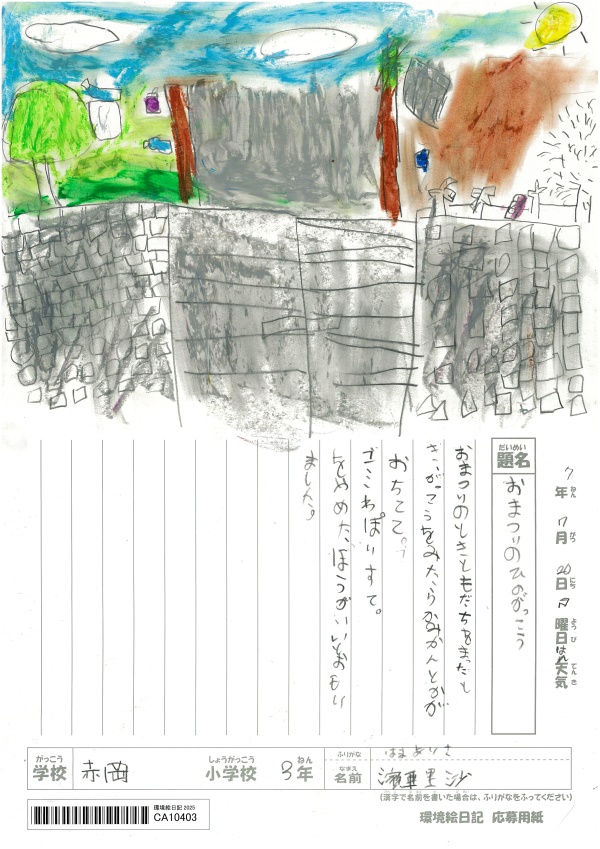 7年 7月 20日 日曜日 はれ天気
ねん がつ にち ようび てんき
題名
だいめい
おまつりのひのがっこう
おまつりのときともだちをまったと
きにがっこうをみたらかみかんとかが
おちてて。
ごみわぽりすて。
をやめた、ほうがいいとおもい
ました。
がっこう
学校
赤岡
しょうがっこう
小学校
3年
ねん
ふりがな
はま ありさ
なまえ
名前
濵 亜里沙
(漢字で名前を書いた場合は、ふりがなをふってください)
環境絵日記 2025
CA10403
環境絵日記 応募用紙